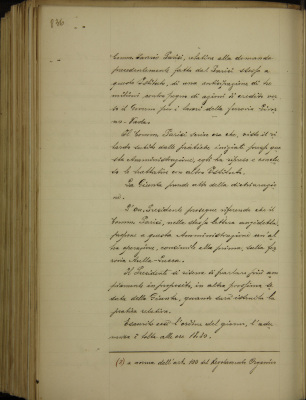 840
Comm. Parisi, relativa alla domanda
precedentemente fatta dal Parisi stesso a
questo Istituto, di una anticipazione di
milioni, contro pegno di azioni di credito verso
il Governo per i lavori della ferrovia
Il Comm. Parisi scrive ora che, visto il ri-
tardo subito dalle pratiche iniziate presso que-
sta Amministrazione, egli ha ripreso e conclu-
so le trattative con altro Istituto.
La Giunta prende atto della dichiarazio-
ne.
L'on. Presidente prosegue riferendo che il
Comm. Parisi, nella stessa lettera
propone a questa Amministrazione un'al
tra operazione, consimile alla prima, della fer
rovia
Il Presidente si riserva di parlare più am-
piamente in proposito, in altra prossima se-
duta della Giunta, quando sarà istruita la
pratica relativa.
Esaurito così l'ordine del giorno, l'adu-
nanza è tolta alle ore
(1) a norma dell'art. del Regolamento Organico